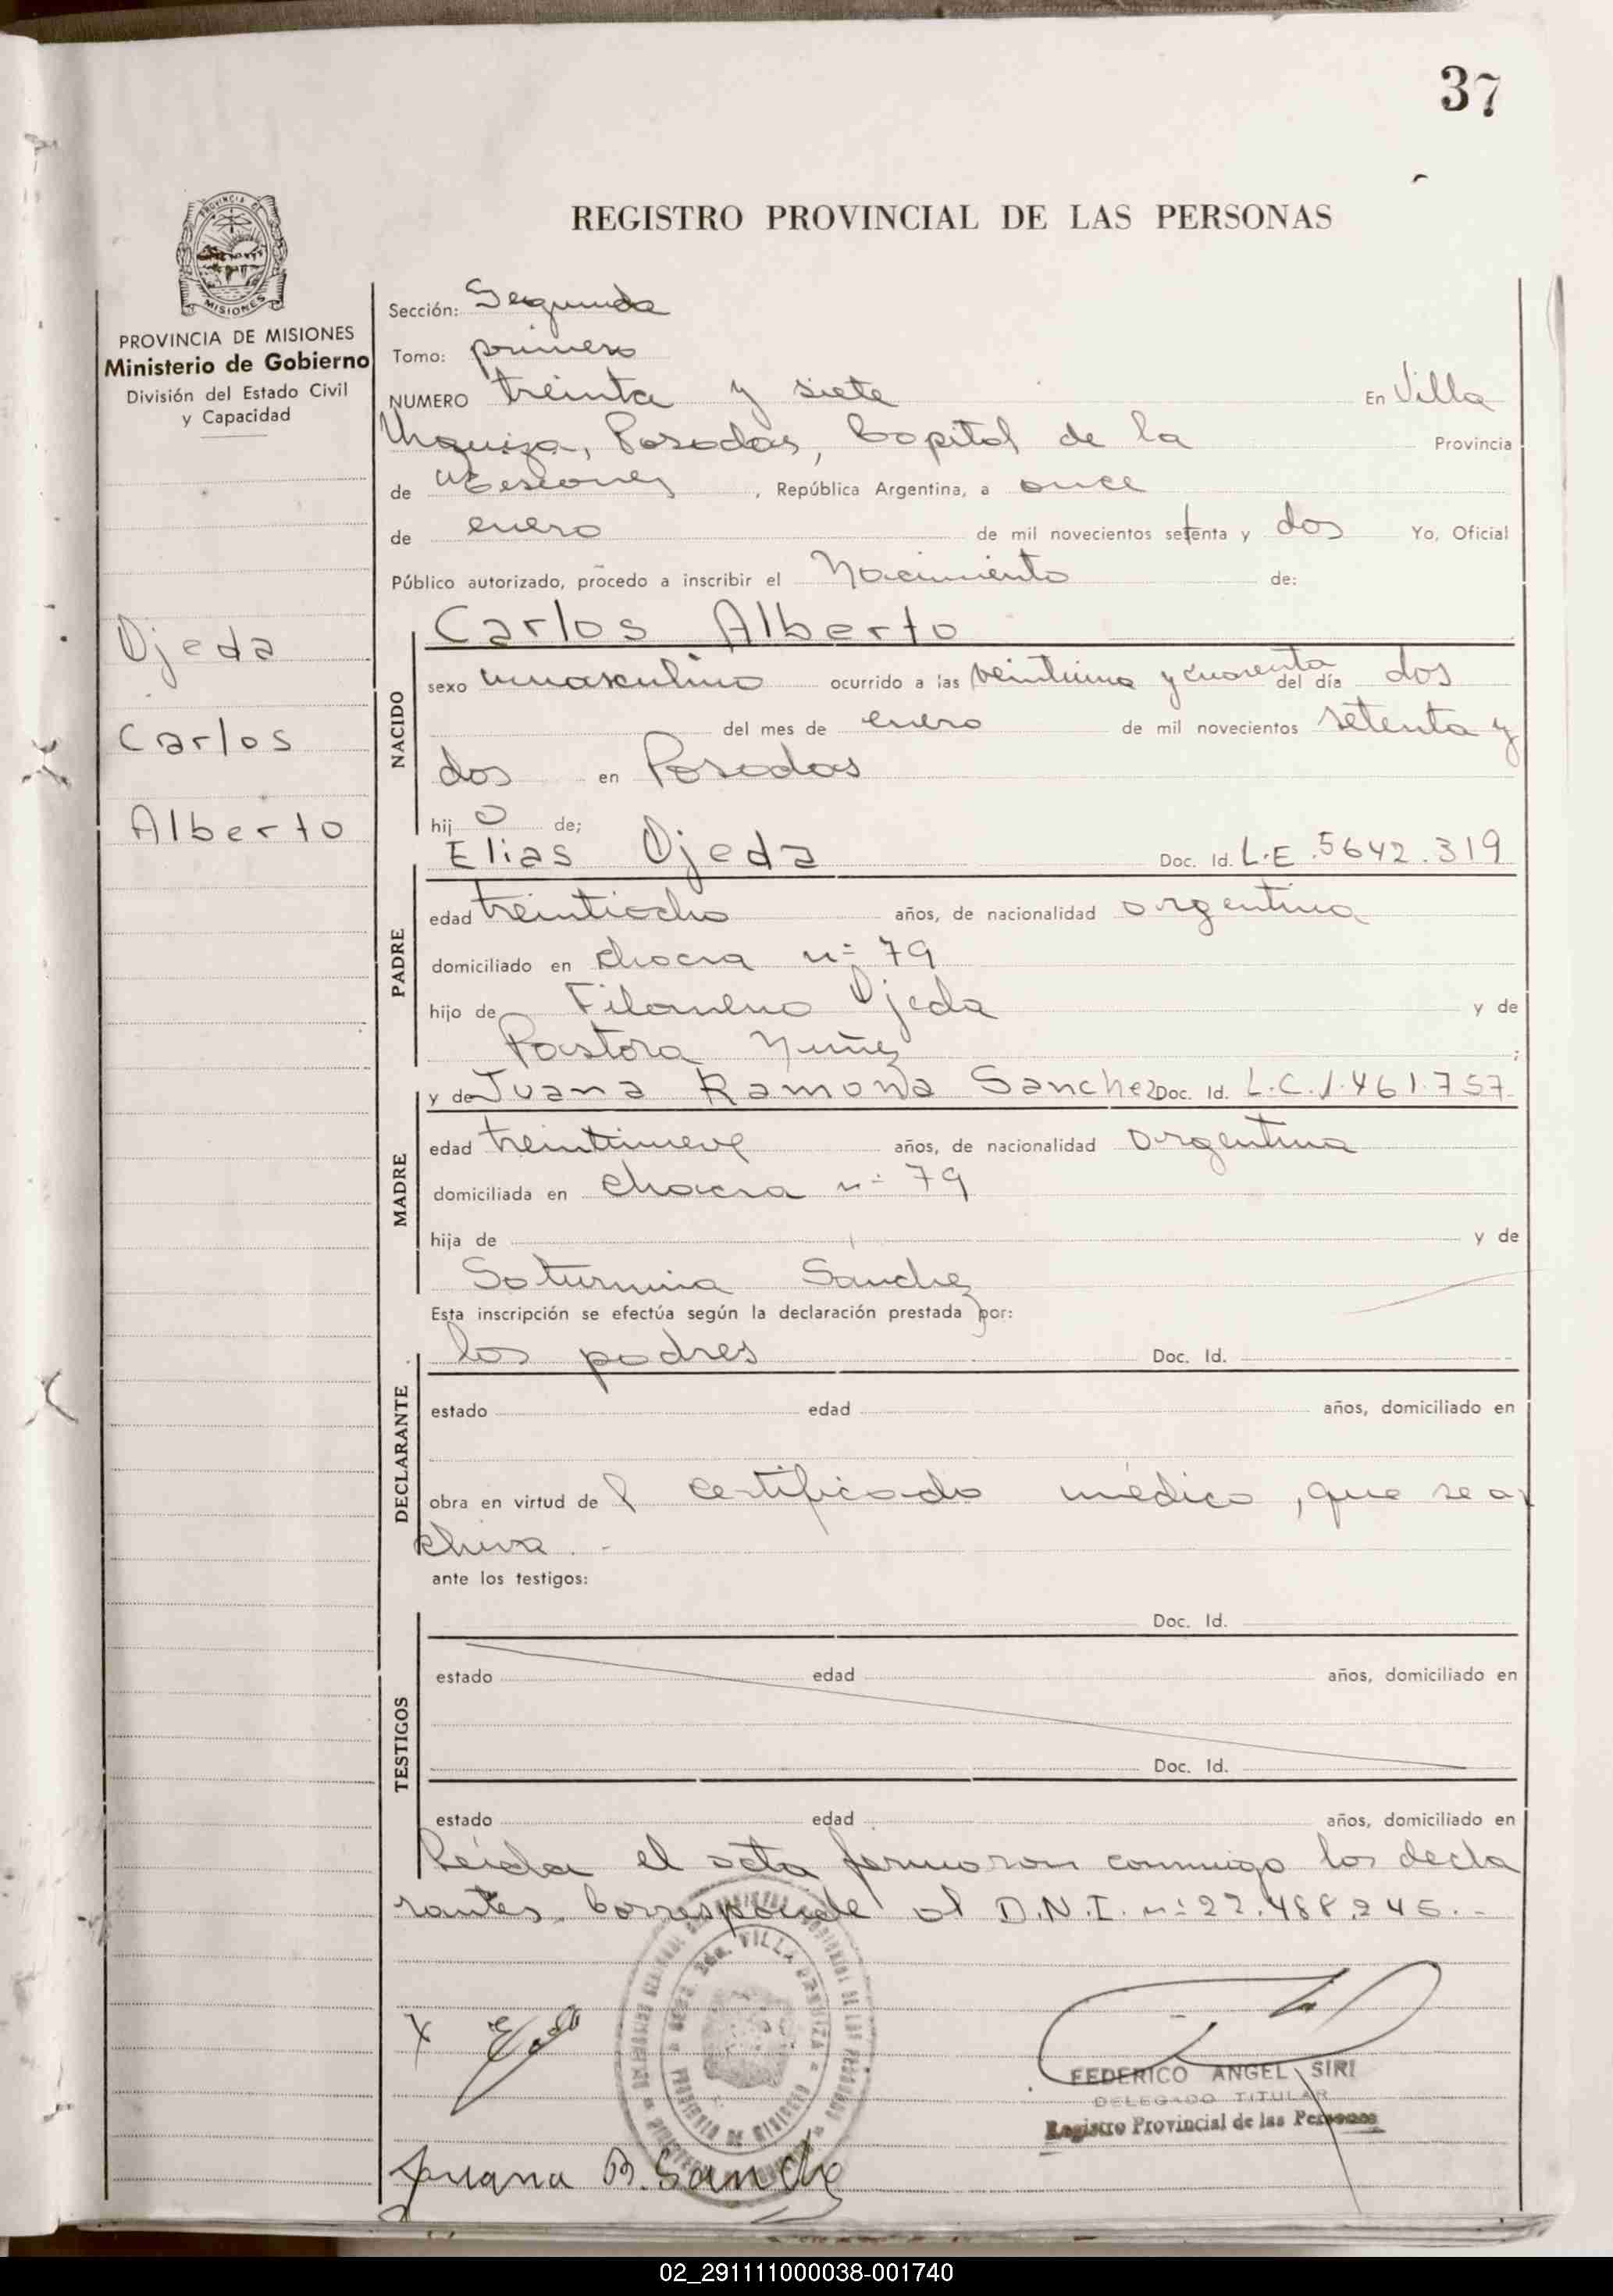 37
REGISTRO PROVINCIAL DE LAS PERSONAS
MISIONES
PROVINCIA DE MISIONES
Ministerio de Gobierno
División del Estado Civil
y Capacidad
Ojeda
Carlos
Alberto
Sección: Segunda
Tomo: primero
NUMERO treinta y siete En Villa
Urquiza, Posadas, Capital de la Provincia
de Misiones, República Argentina, a once
de enero de mil novecientos setenta y dos Yo, Oficial
Público autorizado, procedo a inscribir el Nacimiento de:
NACIDO
Carlos Alberto
sexo masculino ocurrido a las veintiuna y cuarenta del día dos
del mes de enero de mil novecientos setenta y
dos en Posadas
hij o de;
PADRE
Elias Ojeda Doc. Id. L.E. 5642.319
edad treintiocho años, de nacionalidad argentina
domiciliado en chacra nº 79
hijo de Filomeno Ojeda y de
Pastora Nuñez ;
MADRE
y de Juana Ramona Sanchez Doc. Id. L.C. 1.461.757
edad treintinueve años, de nacionalidad argentina
domiciliada en chacra nº 79
hija de y de
Saturnina Sanchez
Esta inscripción se efectúa según la declaración prestada por:
DECLARANTE
los padres Doc. Id.
estado edad años, domiciliado en
obra en virtud de l certificado médico, que se ar
chiva.-
ante los testigos:
TESTIGOS
Doc. Id.
estado edad años, domiciliado en
Doc. Id.
estado edad años, domiciliado en
Leida el acta firmaron conmigo los decla
rantes. Corresponde al D.N.I. nº 22.488.245.-
VILLA URQUIZA
PROVINCIA DE MISIONES
FEDERICO ANGEL SIRI
DELEGADO TITULAR
Registro Provincial de las Personas
Juana R. Sanchez
02_291111000038-001740